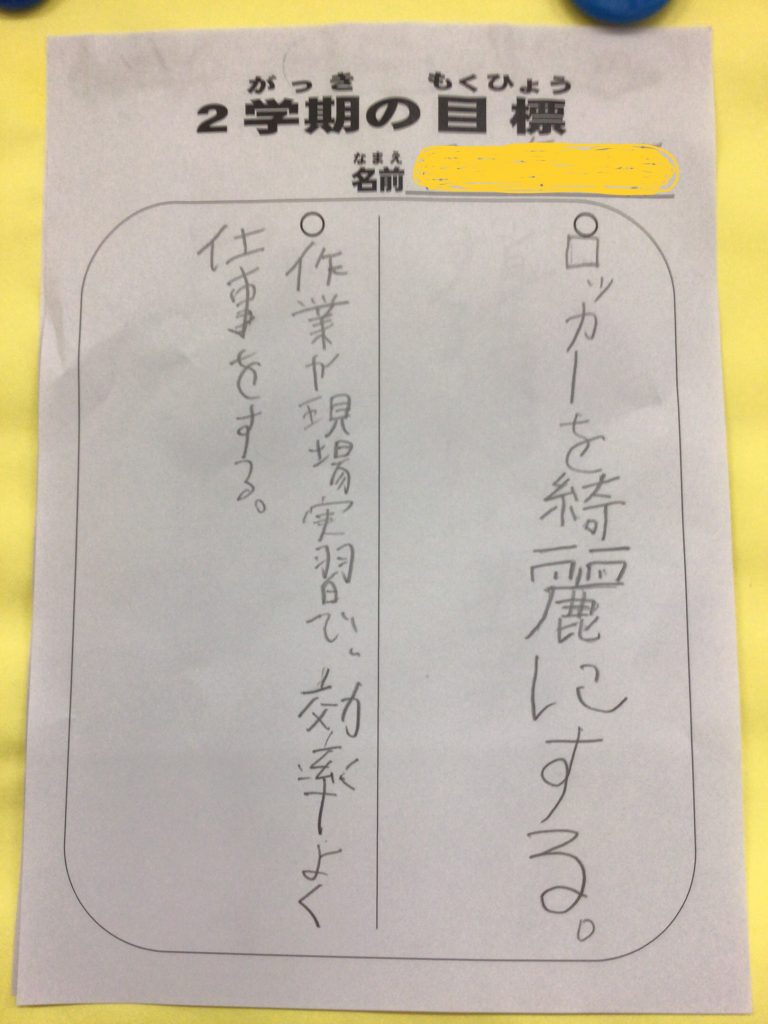 がっき もくひょう
2学期の目標
なまえ
名前
○ロッカーを綺麗にする。
○作業や現場実習で、効率よく
仕事をする。